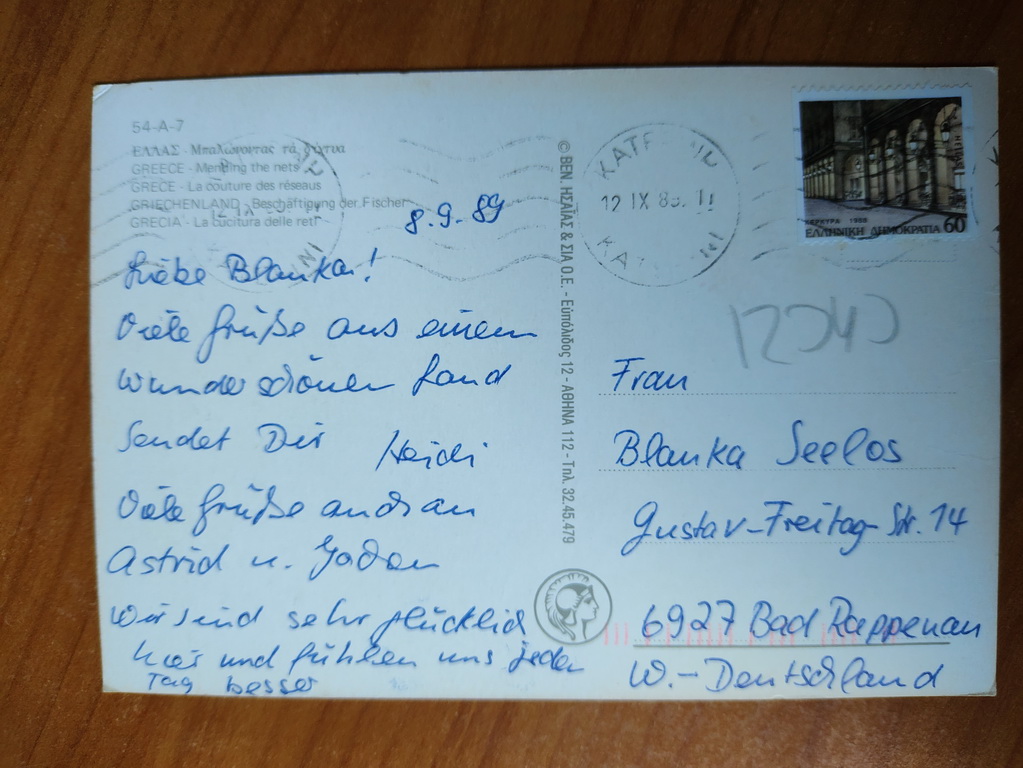 54-A-7
ΕΛΛΑΣ - Μπαλώνοντας τά δίχτυα
GREECE - Mending the nets
GRECE - La couture des réseaux
GRIECHENLAND - Beschäftigung der Fischer
GRECIA - La cucitura delle reti
8.9.89
Liebe Blanka!
Viele Grüße aus einem
wunderschönen Land
sendet Dir Heidi
Viele Grüße auch an
Astrid u.
Wir sind sehr glücklich
hier und fühlen uns jeden
Tag besser
© ΒΕΝ. ΗΣΑΪΑΣ & ΣΙΑ Ο.Ε. - Εὐπόλιδος 12 - ΑΘΗΝΑ 112 - Τηλ. 32.45.479
12 IX 89
ΚΕΡΚΥΡΑ 1988
ΕΛΛΗΝΙΚΗ ΔΗΜΟΚΡΑΤΙΑ 60
Frau
Blanka Seelos
Gustav-Freitag-Str. 14
6927 Bad Rappenau
W.-Deutschland